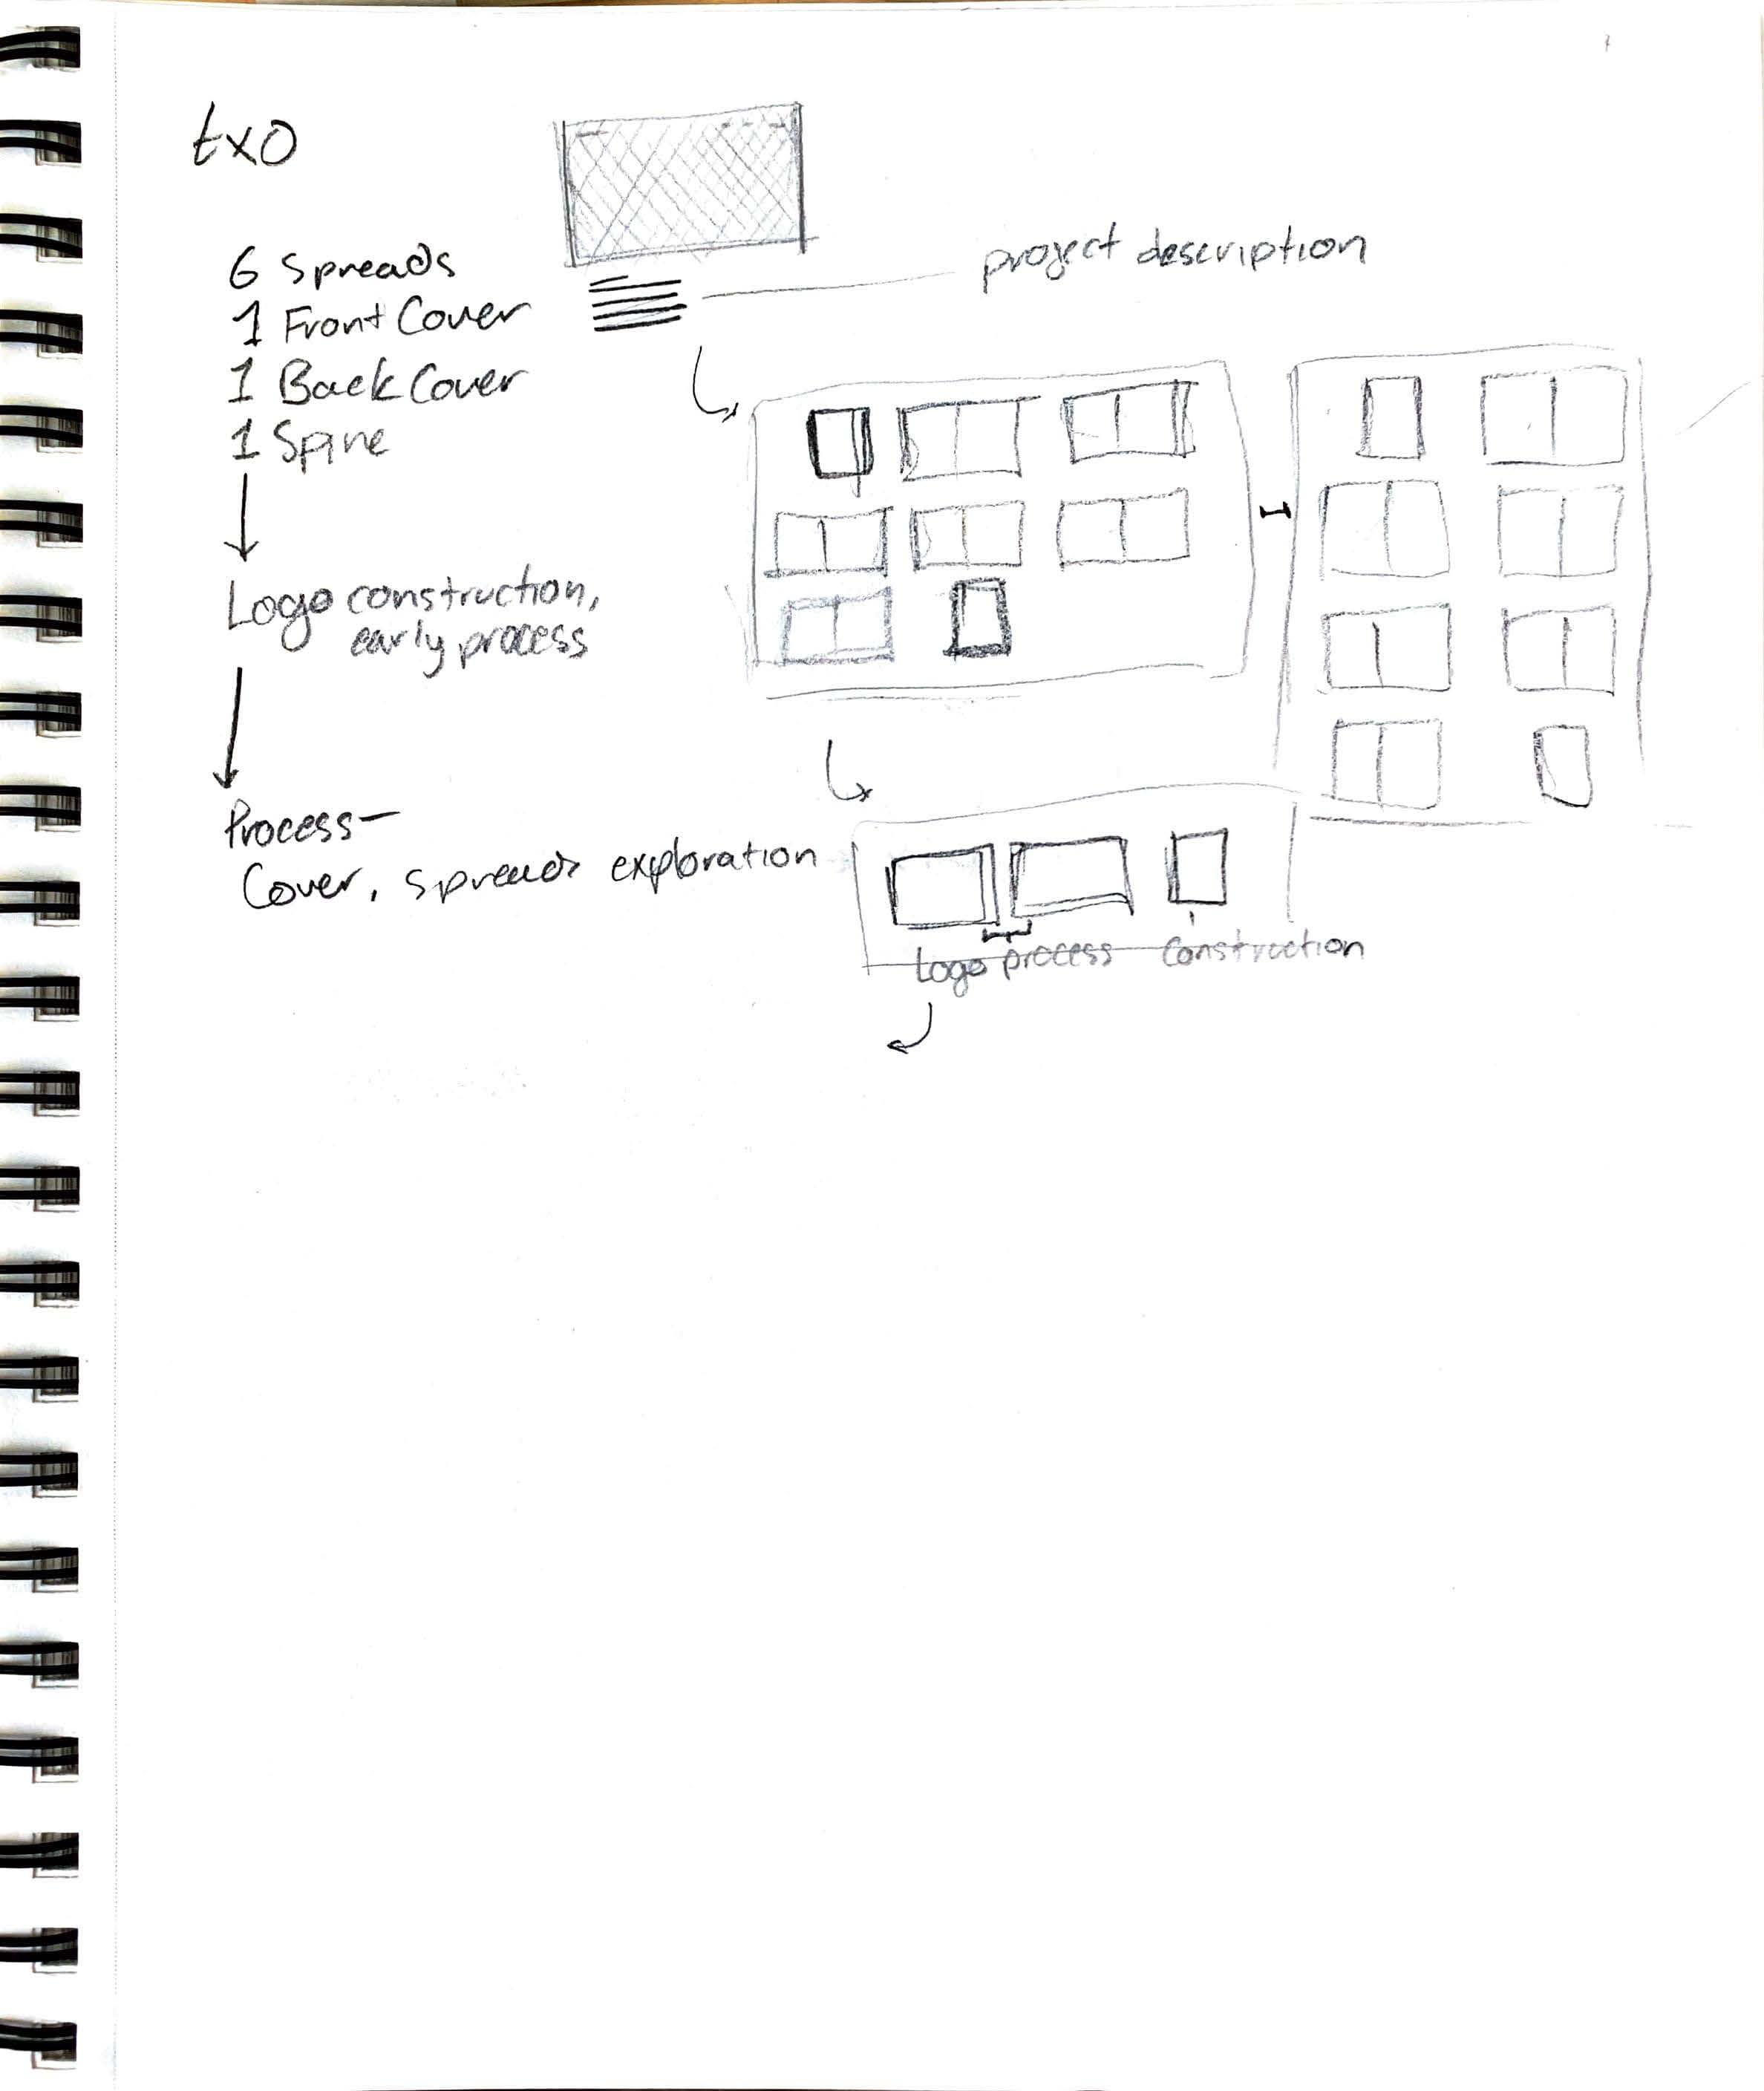 txo
6 Spreads
1 Front Cover
1 Back Cover
1 Spine
Logo construction,
early process
Process—
Cover, spreads exploration
project description
Logo process
Construction